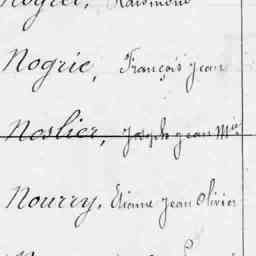 Raismond
Nogrie, François Jean
Noslier, Joseph Jean Mie
Nourry, Etienne Jean Olivier